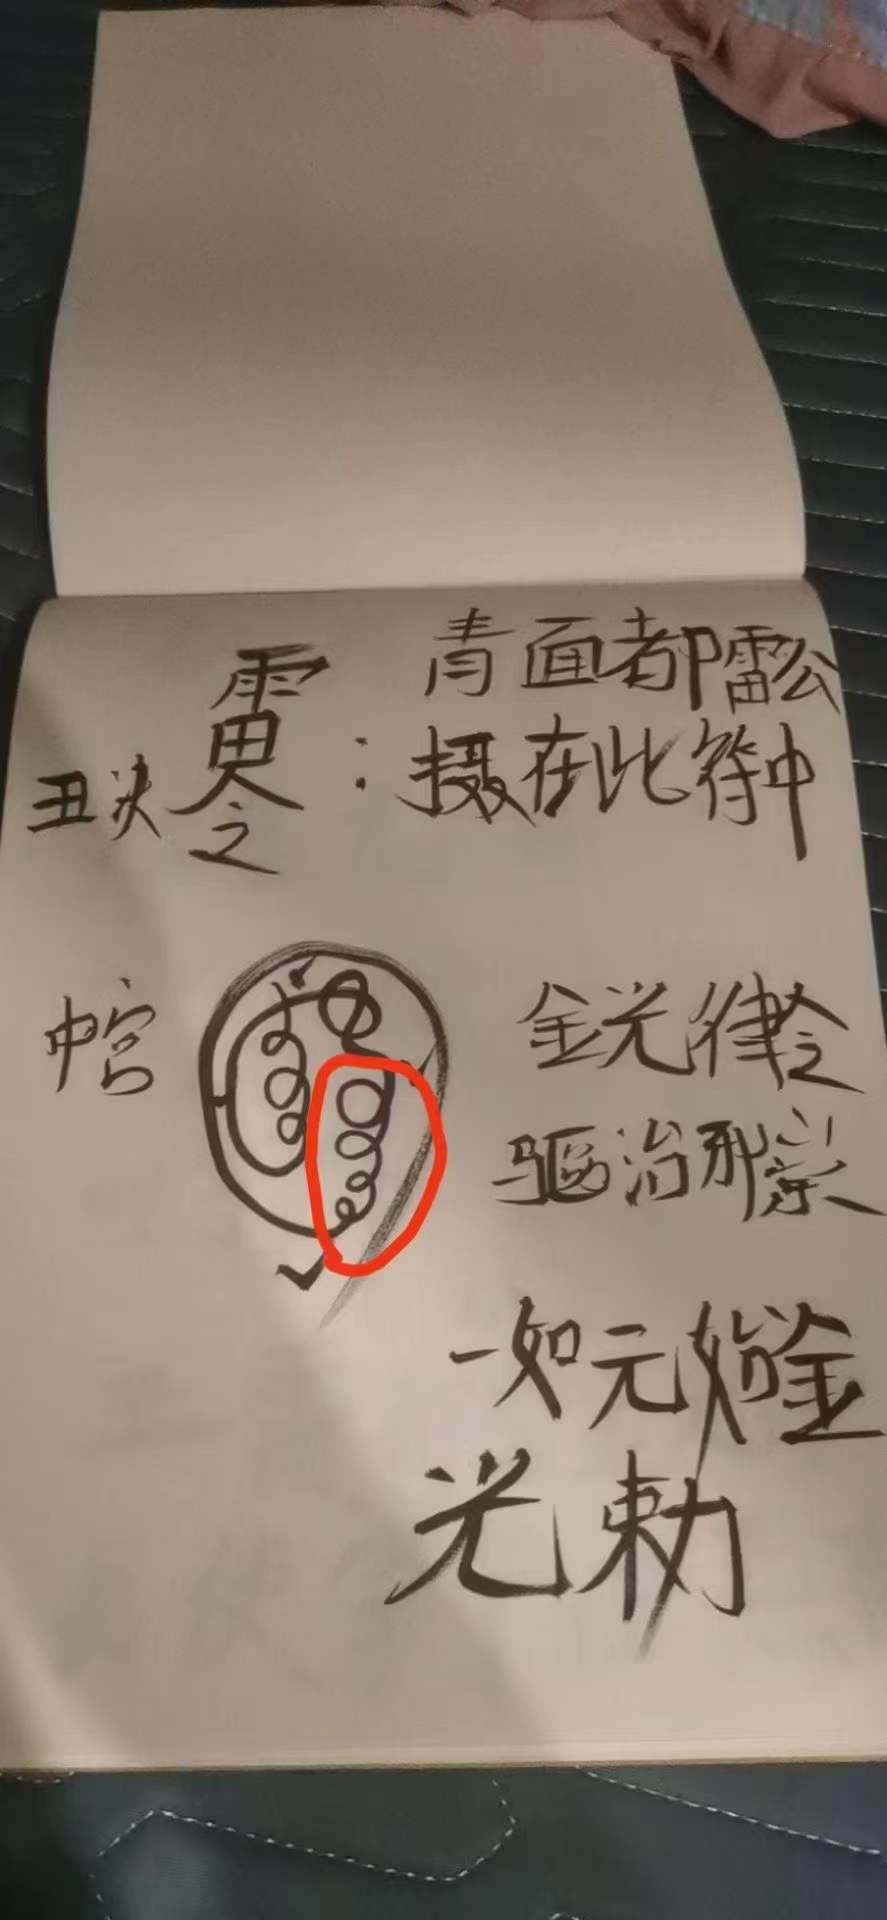 青面都雷公
丑决
：摄在此符中
中宫
金光律令
驱治邪祟
一如元始金
光勅